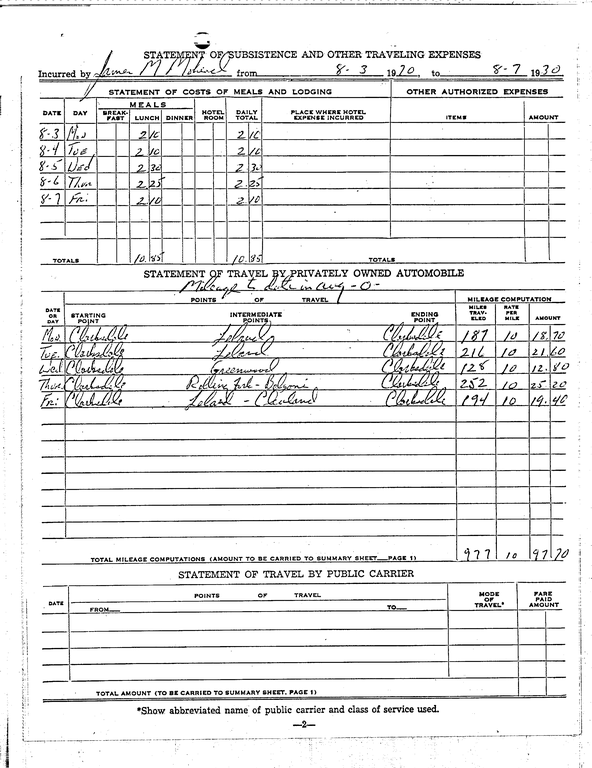 STATEMENT OF SUBSISTENCE AND OTHER TRAVELING EXPENSES
Incurred by M from 8-3 1970, to 8-7 1970
STATEMENT OF COSTS OF MEALS AND LODGING OTHER AUTHORIZED EXPENSES
MEALS
DATE DAY BREAK-FAST LUNCH DINNER HOTEL ROOM DAILY TOTAL PLACE WHERE HOTEL EXPENSE INCURRED ITEMS AMOUNT
8-3 Mon 2 10 2 10
8-4 Tue 2 10 2 10
8-5 Wed 2 30 2 30
8-6 Thur 2 25 2.25
8-7 Fri 2 10 2 10
TOTALS 10.85 10.85 TOTALS
STATEMENT OF TRAVEL BY PRIVATELY OWNED AUTOMOBILE
Mileage to date in Aug -0-
POINTS OF TRAVEL MILEAGE COMPUTATION
DATE OR DAY STARTING POINT INTERMEDIATE POINTS ENDING POINT MILES TRAV-ELED RATE PER MILE AMOUNT
Mon. Clarksdale Leland Clarksdale 187 10 18.70
Tue. Clarksdale Leland Clarksdale 216 10 21.60
Wed Clarksdale Greenwood Clarksdale 128 10 12.80
Thur. Clarksdale Rolling Fork - Belzoni Clarksdale 252 10 25 20
Fri Clarksdale Leland - Cleveland Clarksdale 194 10 19.40
TOTAL MILEAGE COMPUTATIONS (AMOUNT TO BE CARRIED TO SUMMARY SHEET__PAGE 1) 977 10 97 70
STATEMENT OF TRAVEL BY PUBLIC CARRIER
DATE POINTS OF TRAVEL MODE OF TRAVEL* FARE PAID AMOUNT
FROM__ TO__
TOTAL AMOUNT (TO BE CARRIED TO SUMMARY SHEET, PAGE 1)
*Show abbreviated name of public carrier and class of service used.
—2—